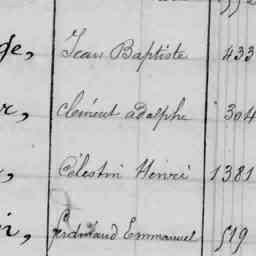 Jean Baptiste 433
clément adolphe 304
Célestin Henri 1381
ferdinand Emmanuel 519